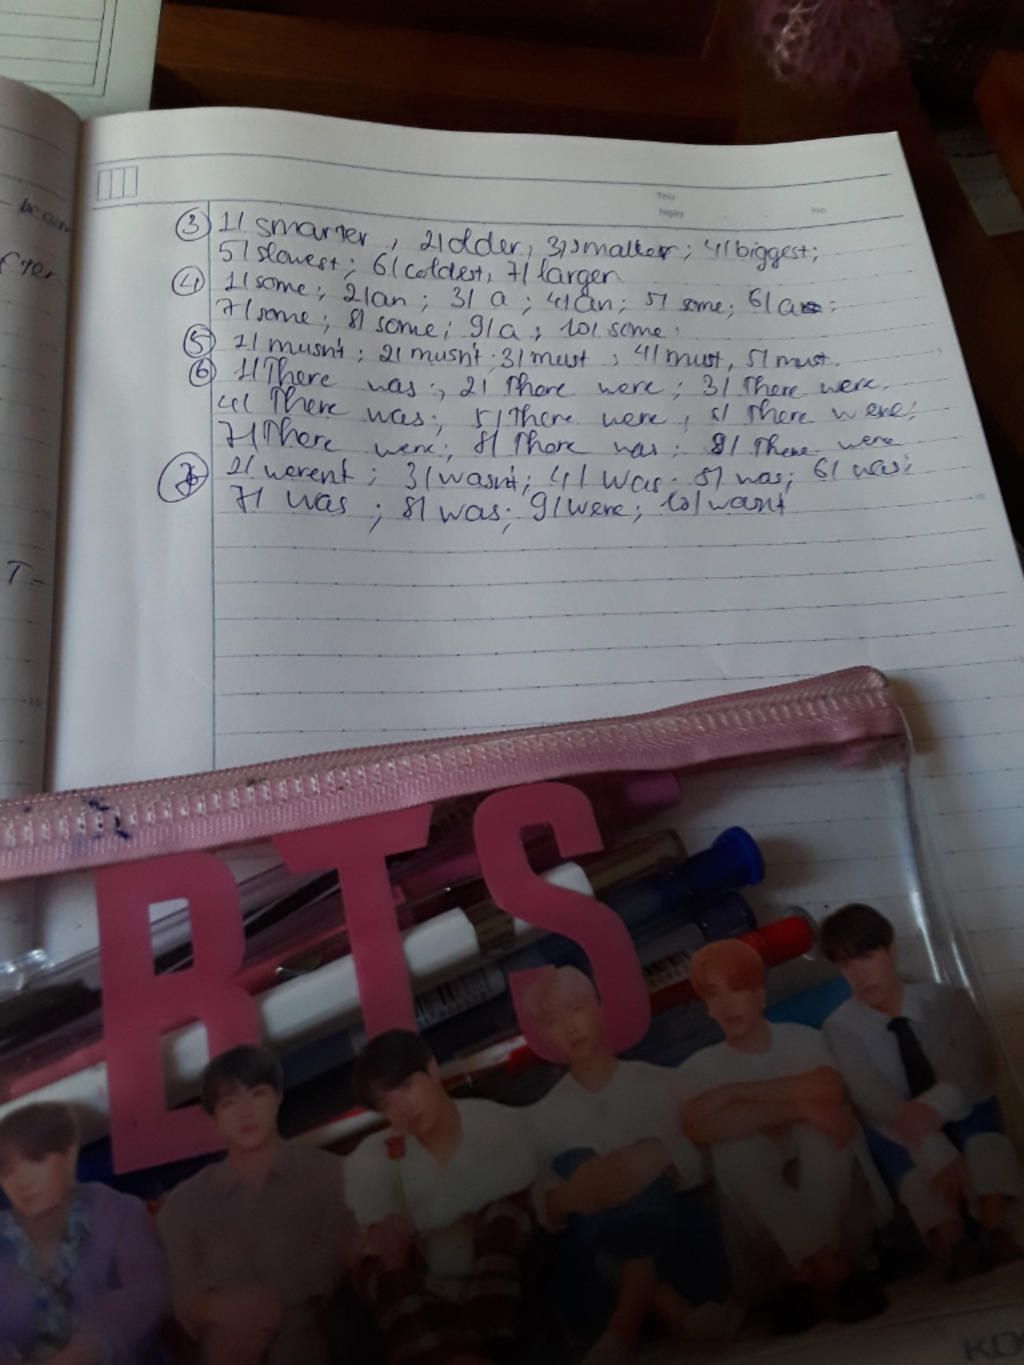 Thứ
Ngày No.
③ 1/ smarter, 2/ older, 3/ smaller; 4/ biggest;
5/ slowest; 6/ coldest, 7/ larger
④ 1/ some; 2/ an; 3/ a; 4/ an; 5/ some; 6/ a;
7/ some; 8/ some; 9/ a; 10/ some;
⑤ 1/ musn't; 2/ musn't; 3/ must; 4/ must, 5/ must.
⑥ 1/ There was; 2/ There were; 3/ There were;
4/ There was; 5/ There were, 5/ There were;
7/ There were; 8/ There was; 9/ There were
2/ werent; 3/ wasn't; 4/ Was. 5/ was; 6/ was;
7/ was; 8/ was; 9/ were; 10/ wasnt
BTS